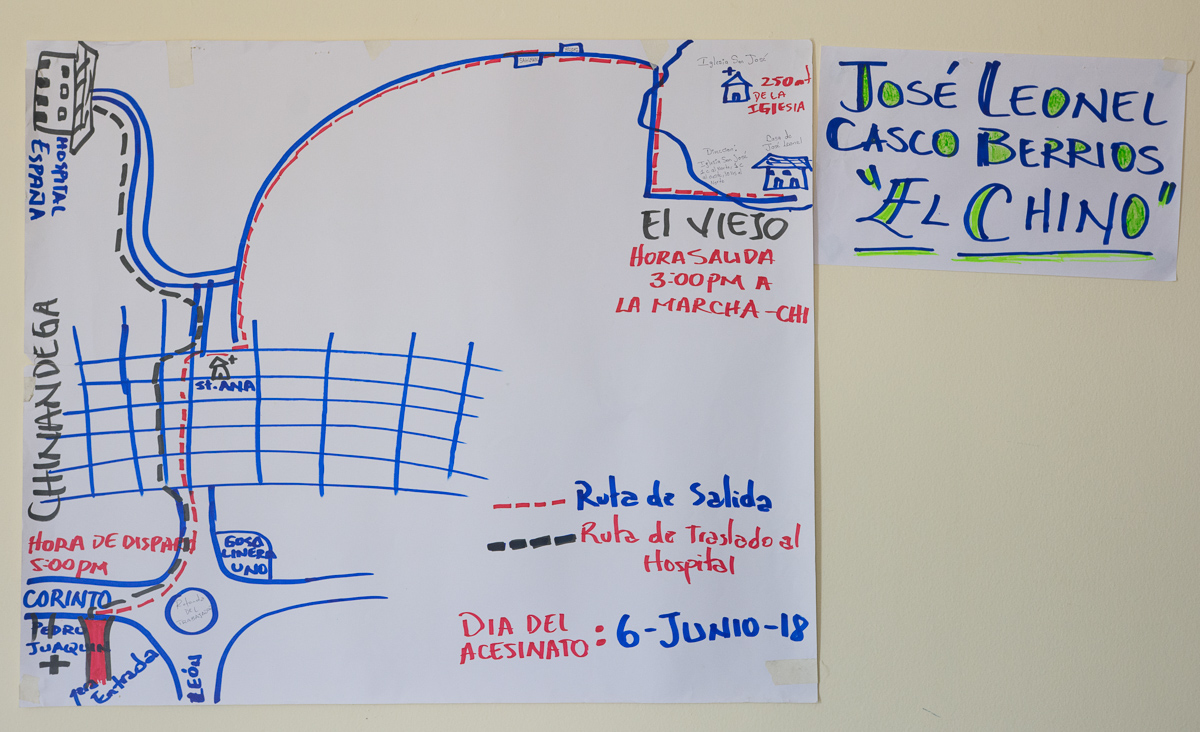 HOSPITAL
ESPAÑA
Iglesia San José
250mt
DE LA
IGLESIA
Casa de
José Leonel
Direccion:
Iglesia San José
JOSÉ LEONEL
CASCO BERRIOS
"EL CHINO"
El VIEJO
HORA SALIDA
3:00 PM A
LA MARCHA-CHI
CHINANDEGA
St. ANA
Ruta de Salida
Ruta de Traslado al
Hospital
HORA DE DISPARO
5:00 PM
GOSO
LINERA
UNO
CORINTO
PEDRO
JUAQUIN
1era
Entrada
LEÓN
DIA DEL
ACESINATO : 6-JUNIO-18